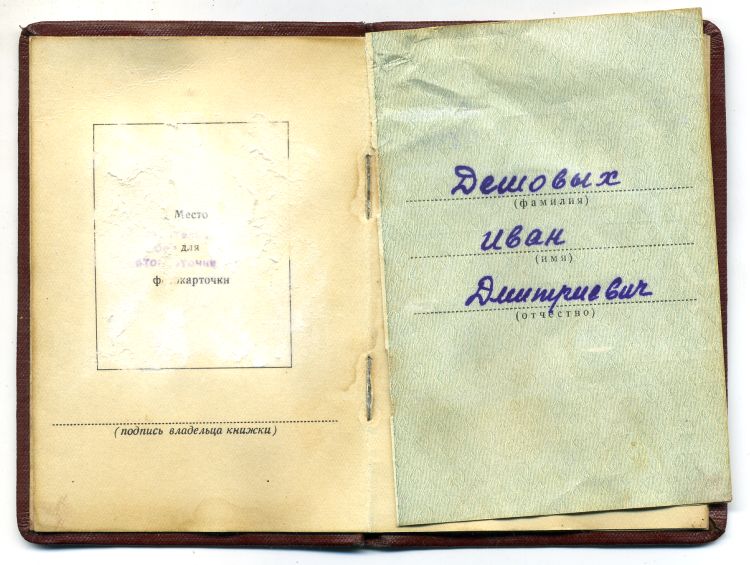 Место
для
фотокарточки
(подпись владельца книжки)
Дешовых
(фамилия)
Иван
(имя)
Дмитриевич
(отчество)